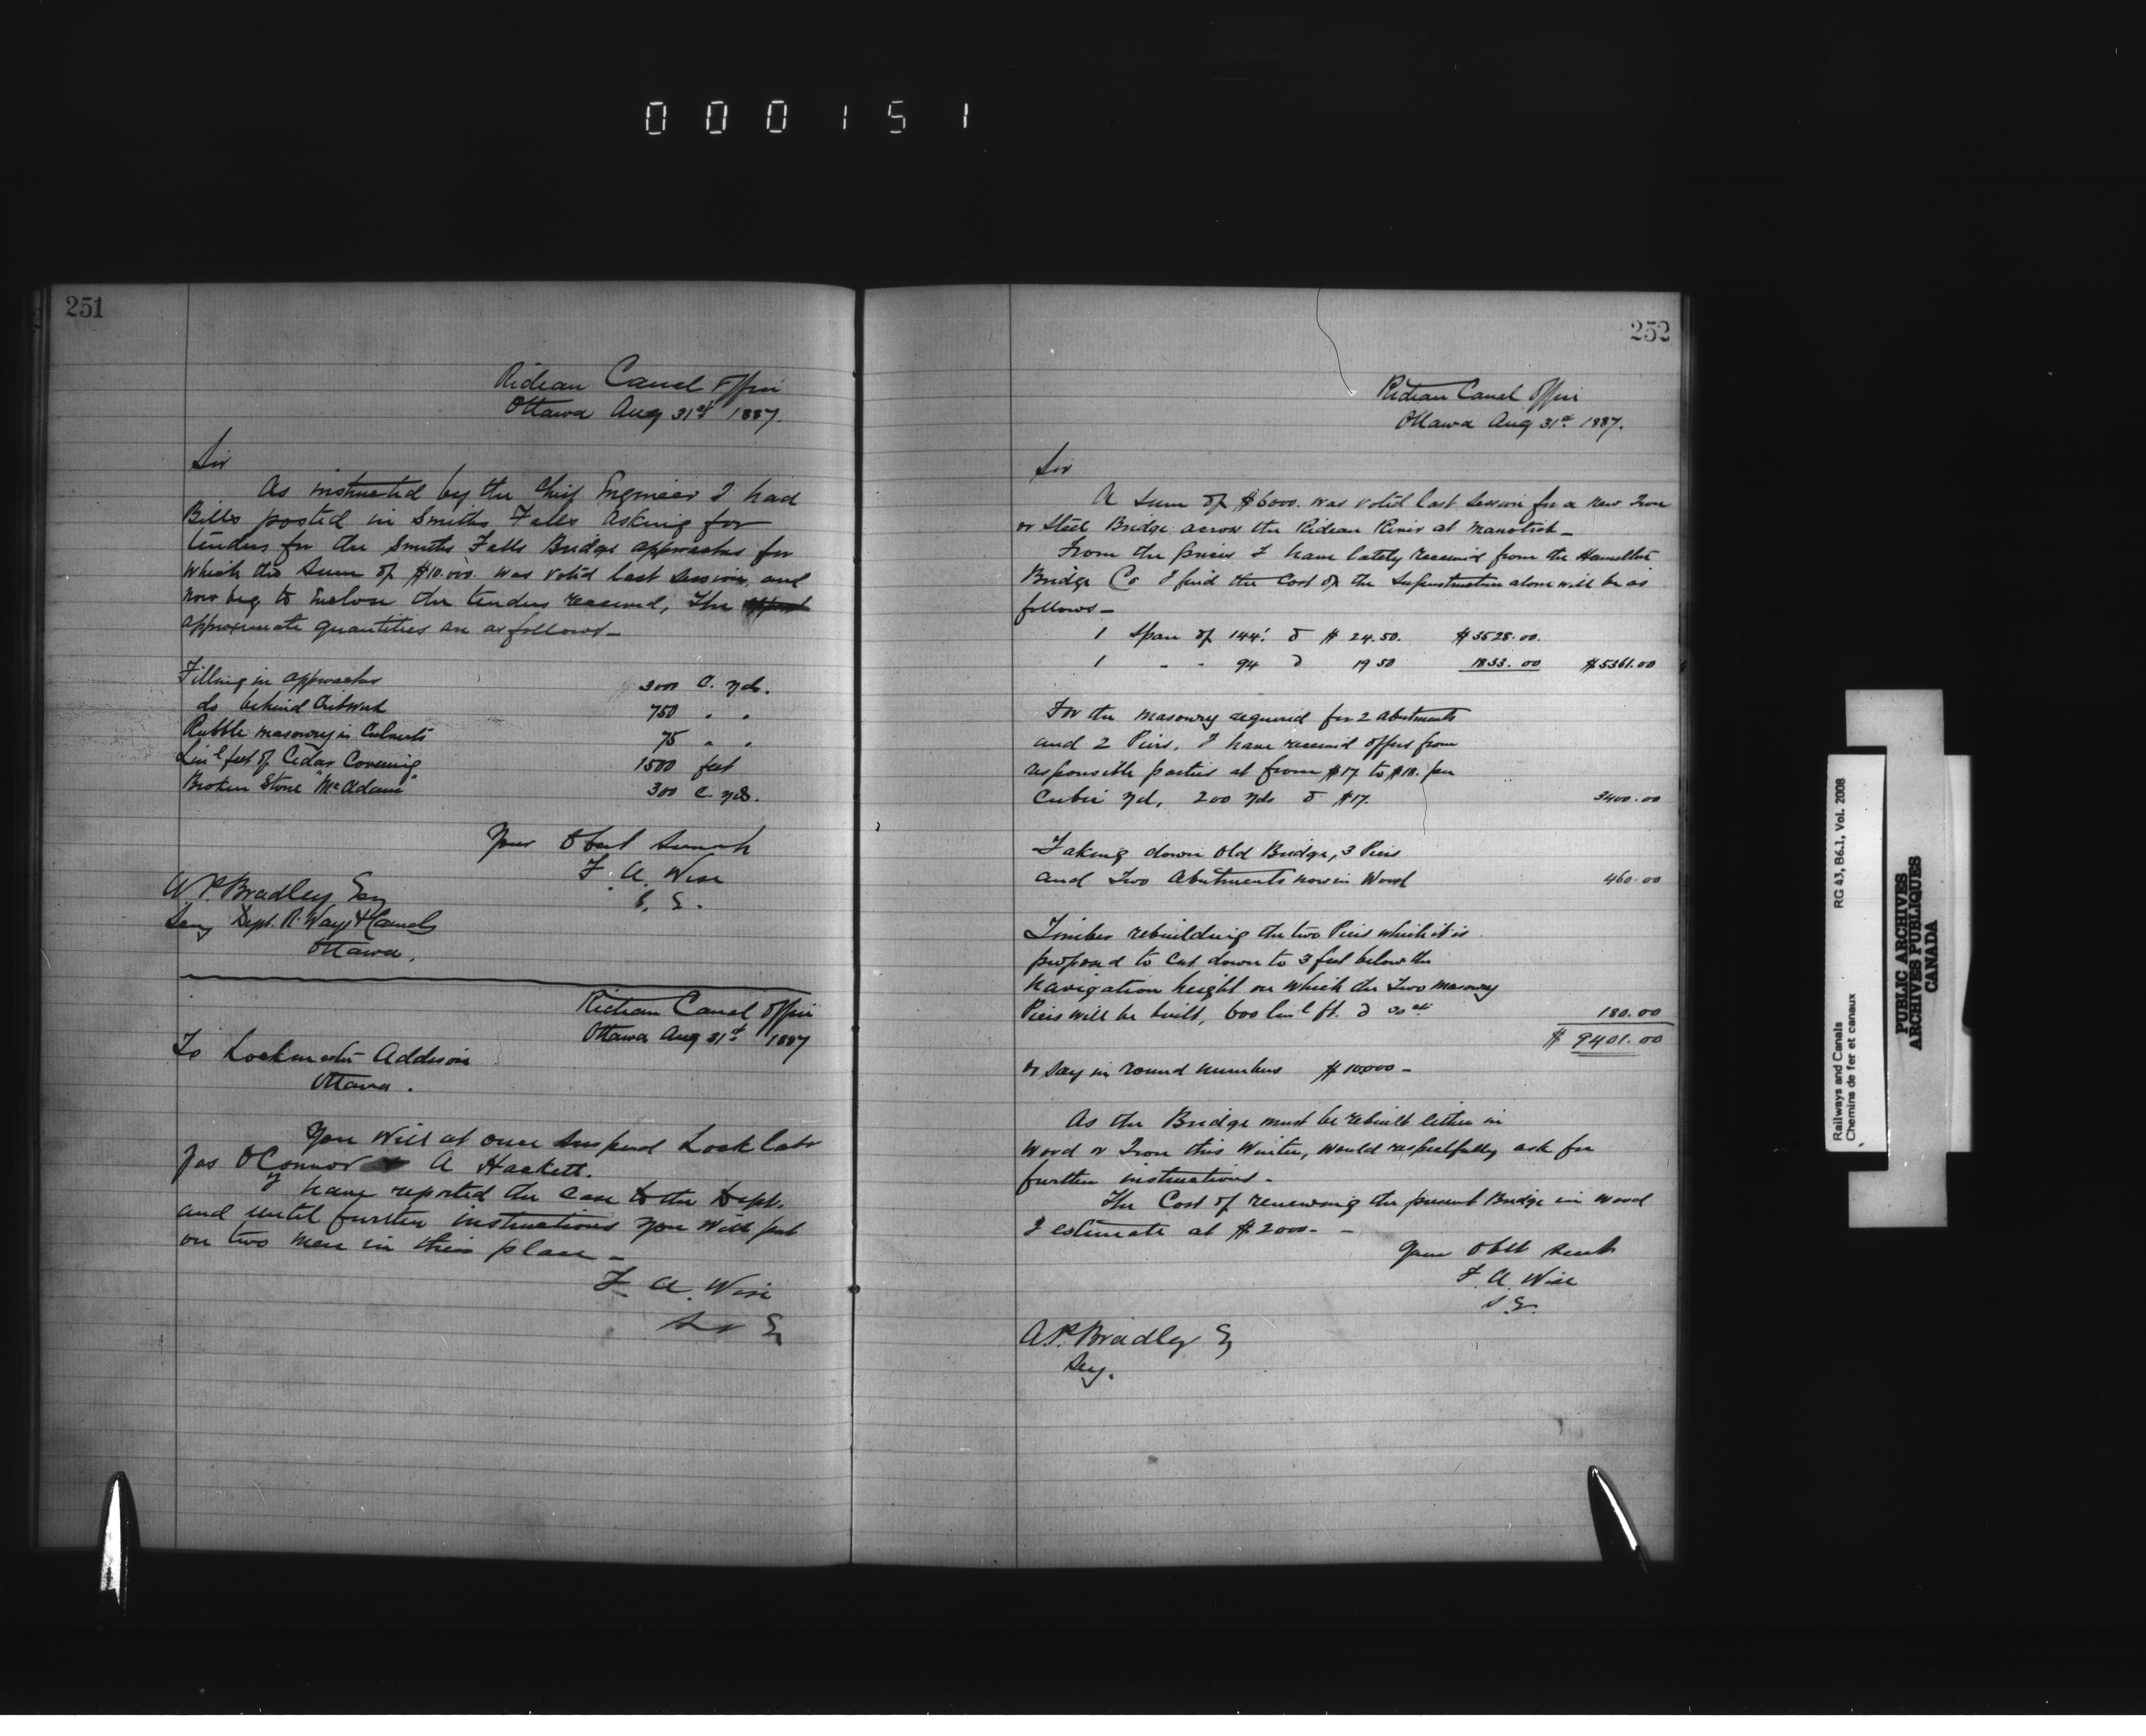 000151
251
Rideau Canal Office
Ottawa Aug 31st 1887.
Sir
As instructed by the Chief Engineer I had
Bills posted in Smiths Falls asking for
tenders for the Smiths Falls Bridge approaches for
which the sum of $10.000. was voted last session, and
now beg to enclose the tenders received, The
approximate quantities are as follows—
Filling in approaches 3000 C. yds.
do behind Cribwork 750 " "
Rubble masonry in Culverts 75 " "
Linl feet of Cedar Covering 1500 feet
Broken Stone "McAdam" 300 C. yds.
Your Obedt Servant
F. A. Wise
S. E.
A P. Bradley Esq
Secy Dept. R. Ways & Canals
Ottawa.
Rideau Canal Office
Ottawa Aug 31st 1887
To Lockmaster Addison
Ottawa.
You will at once suspend Lock labr
Jas OConnor & A Hackett.
I have reported the case to the Dept.
and until further instructions you will put
on two men in their place—
F. A. Wise
Sr E
252
Rideau Canal Office
Ottawa Aug 31st 1887.
Sir
A sum of $6000. was voted last session for a new Iron
or Steel Bridge across the Rideau River at Manotick—
From the prices I have lately received from the Hamilton
Bridge Co I find the cost of the Superstructure alone will be as
follows—
1 Span of 144' @ $ 24.50. $3528.00.
1 " " 94 @ 19 50 1833.00 $5361.00
For the masonry required for 2 abutments
and 2 Piers, I have received offers from
responsible parties at from $17 to $18. per
Cubic yd, 200 yds @ $17. 3400.00
Taking down Old Bridge, 3 Piers
and Two Abutments now in Wood 460.00
Timber rebuilding the two Piers which it is
proposed to cut down to 3 feet below the
navigation height on which the Two masonry
Piers will be built, 600 linl ft. @ 30cts 180.00
$ 9401.00
or say in round numbers $10000—
As the Bridge must be rebuilt either in
Wood or Iron this Winter, would respectfully ask for
further instructions—
The Cost of renewing the present Bridge in wood
I estimate at $2000—
Your Obt Servt
F. A. Wise
S. E.
A. P. Bradley Eq
Secy.
Railways and Canals
Chemins de fer et canaux
RG 43, B6.1, Vol. 2008
PUBLIC ARCHIVES
ARCHIVES PUBLIQUES
CANADA